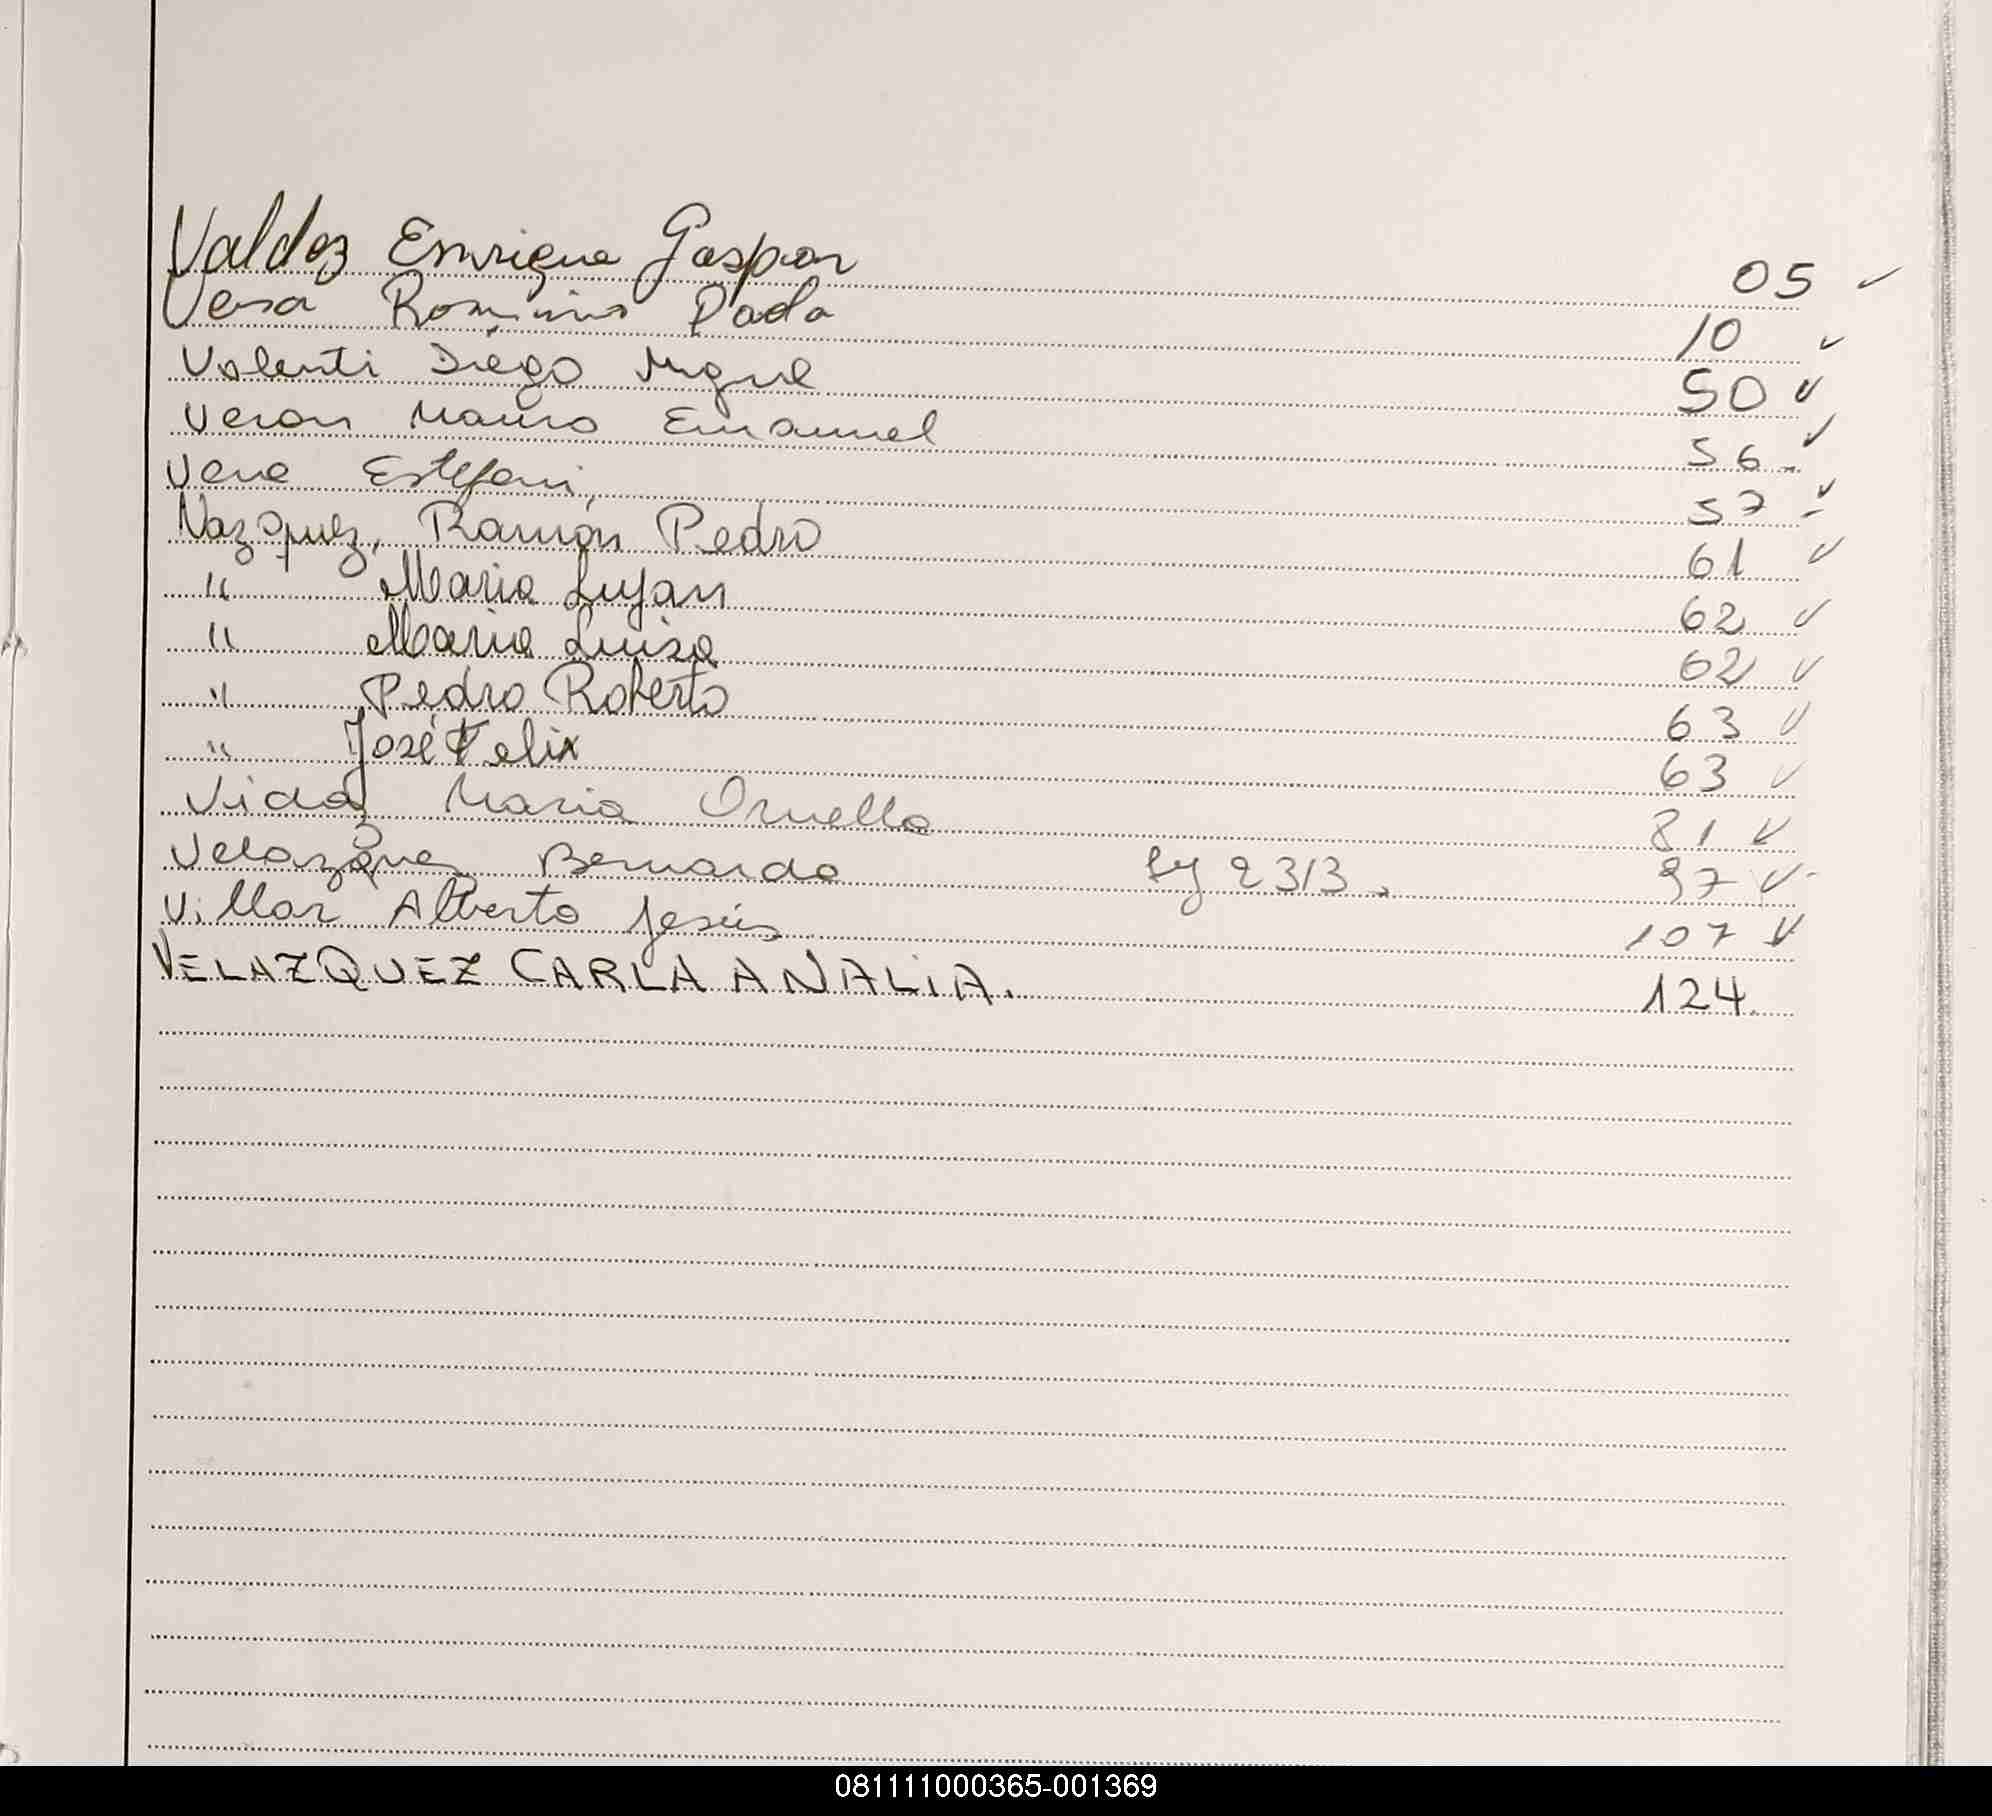 Valdez Enrique Gaspar 05 ✓
Vera Romina Paola 10 ✓
Valenti Diego Miguel 50 ✓
Veron Mauro Emanuel 56 ✓
Vera Estefani 57 ✓
Vazquez, Ramón Pedro 61 ✓
" Maria Lujan 62 ✓
" Maria Luisa 62 ✓
" Pedro Roberto 63 ✓
" José Felix 63 ✓
Vidaz Maria Ornella 81 ✓
Velazquez Bernarda Ley 2313. 97 ✓
Villar Alberto Jesús 107 ✓
VELAZQUEZ CARLA ANALIA. 124.
081111000365-001369